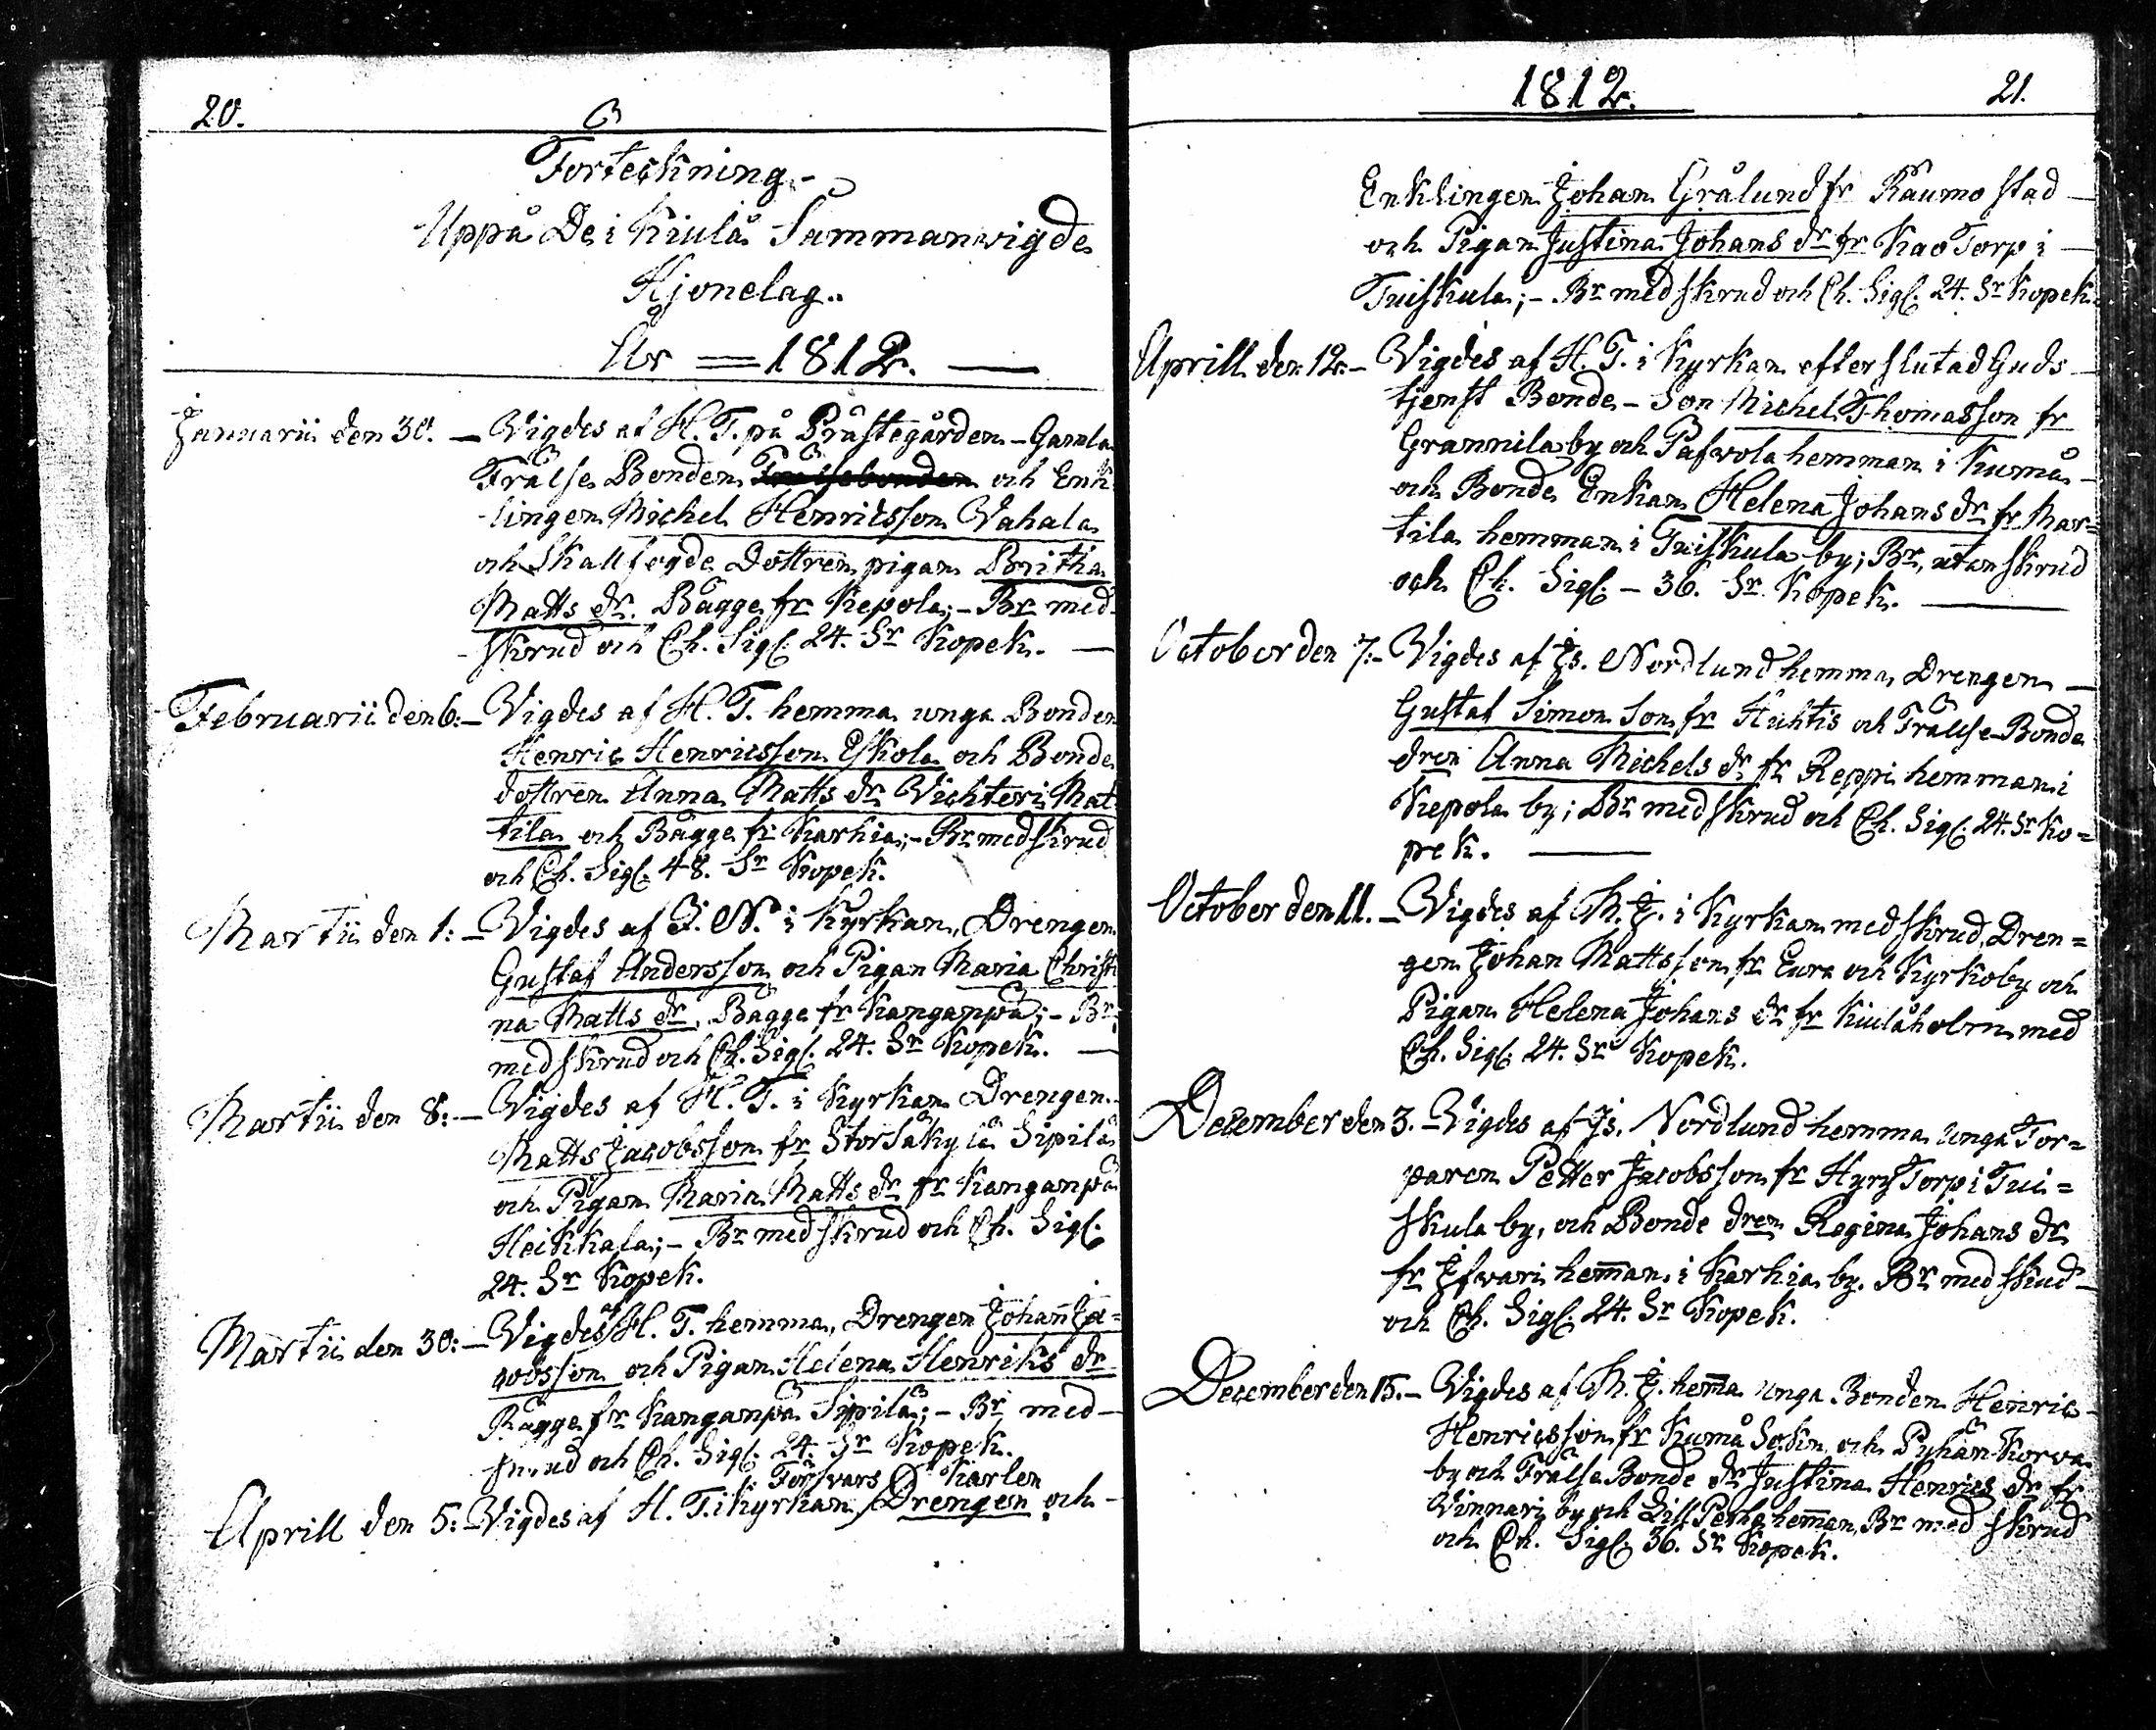 20.
Förteckning
Uppå De i Kiulå Sammanvigde
Hjonelag.
År = 1812. —
Januarii den 30. — Vigdes af H. T. på Prästegården - Gamla
Frälse Bonden och Enk-
lingen Michel Henricsson Vahala
och Skallfogde Dottren pigan Britha
Matts dr. Bägge fr Kepola; - Br med
skrud och Ch. Sigl. 24. Sr Kopek. —
Februarii den 6: — Vigdes af H. T. hemma unga Bonden
Henric Henricsson Eskola och Bonde
dottren Anna Matts dr Vichteri Mat
tila och Bägge fr Karhia; - Br med skrud
och Ch. Sigl. 48. Sr Kopek.
Martii den 1: — Vigdes af J. N. i Kyrkan, Drengen
Gustaf Andersson och Pigan Maria Christi
na Matts dr, Bägge fr Kanganpä; - Br
med skrud och Ch. Sigl. 24. Sr Kopek. —
Martii den 8: — Vigdes af H. T. i Kyrkan Drengen
Matts Jacobsson fr Storsäkylä Sipilä
och Pigan Maria Matts dr fr Kanganpä
Heikkala; - Br med skrud och Ch. Sigl.
24. Sr Kopek.
Martii den 30: — Vigdes af H. T. hemma, Drengen Johan Ja=
cobsson och Pigan Helena Henriks dr
Bägge fr Kanganpä Sipilä; - Br med —
skrud och Ch. Sigl. 24. Sr Kopek.
Försvars Karlen
Aprill den 5: — Vigdes af H. T. i kyrkan Drengen och -
1812. 21.
Enklingen Johan Grålund fr Raumo stad —
och Pigan Justina Johans dr fr Kao Torp i —
Tuiskula; - Br med skrud och Ch. Sigl. 24. Sr Kopek
Aprill den 12: — Vigdes af H. T. i Kyrkan efter slutad Guds —
tjenst Bonde - Son Michel Thomasson fr
Grannila by och Pafvola hemman i Kumå —
och Bonde Enkan Helena Johans dr fr Mar=
tila hemman i Tuiskula by; Br, utan skrud
och Ch. Sigl. - 36. Sr Kopek. —
October den 7: - Vigdes af Js. Nordlund hemma, Drengen —
Gustaf Simon Son fr Huhtis och Frälse Bonde
dren Anna Michels dr fr Reppi hemman i
Kepola by; Br med skrud och Ch. Sigl. 24. Sr Ko=
pek. —
October den 11. — Vigdes af M. J. i Kyrkan med skrud, Dren=
gen Johan Mattsson fr Eura och Kyrkoby och
Pigan Helena Johans dr fr Kiulåholm med
Ch. Sigl: 24. Sr Kopek.
December den 3. — Vigdes af Js. Nordlund hemma unga Tor=
paren Petter Jacobsson fr Hyry Torp i Tui=
skula by, och Bonde dren Regina Johans dr
fr Jfvari hem̄an i Karhia by. Br med skrud —
och Ch. Sigl. 24. Sr Kopek.
December den 15. — Vigdes af M. J. hem̄a unga Bonden Henric —
Henricsson fr Kumå Sokn och Pyhän Korva
by och Frälse Bonde dr Justina Henrics dr fr
Vinnari by och hem̄an, Br med skrud
och Ch. Sigl. 36. Sr Kopek.